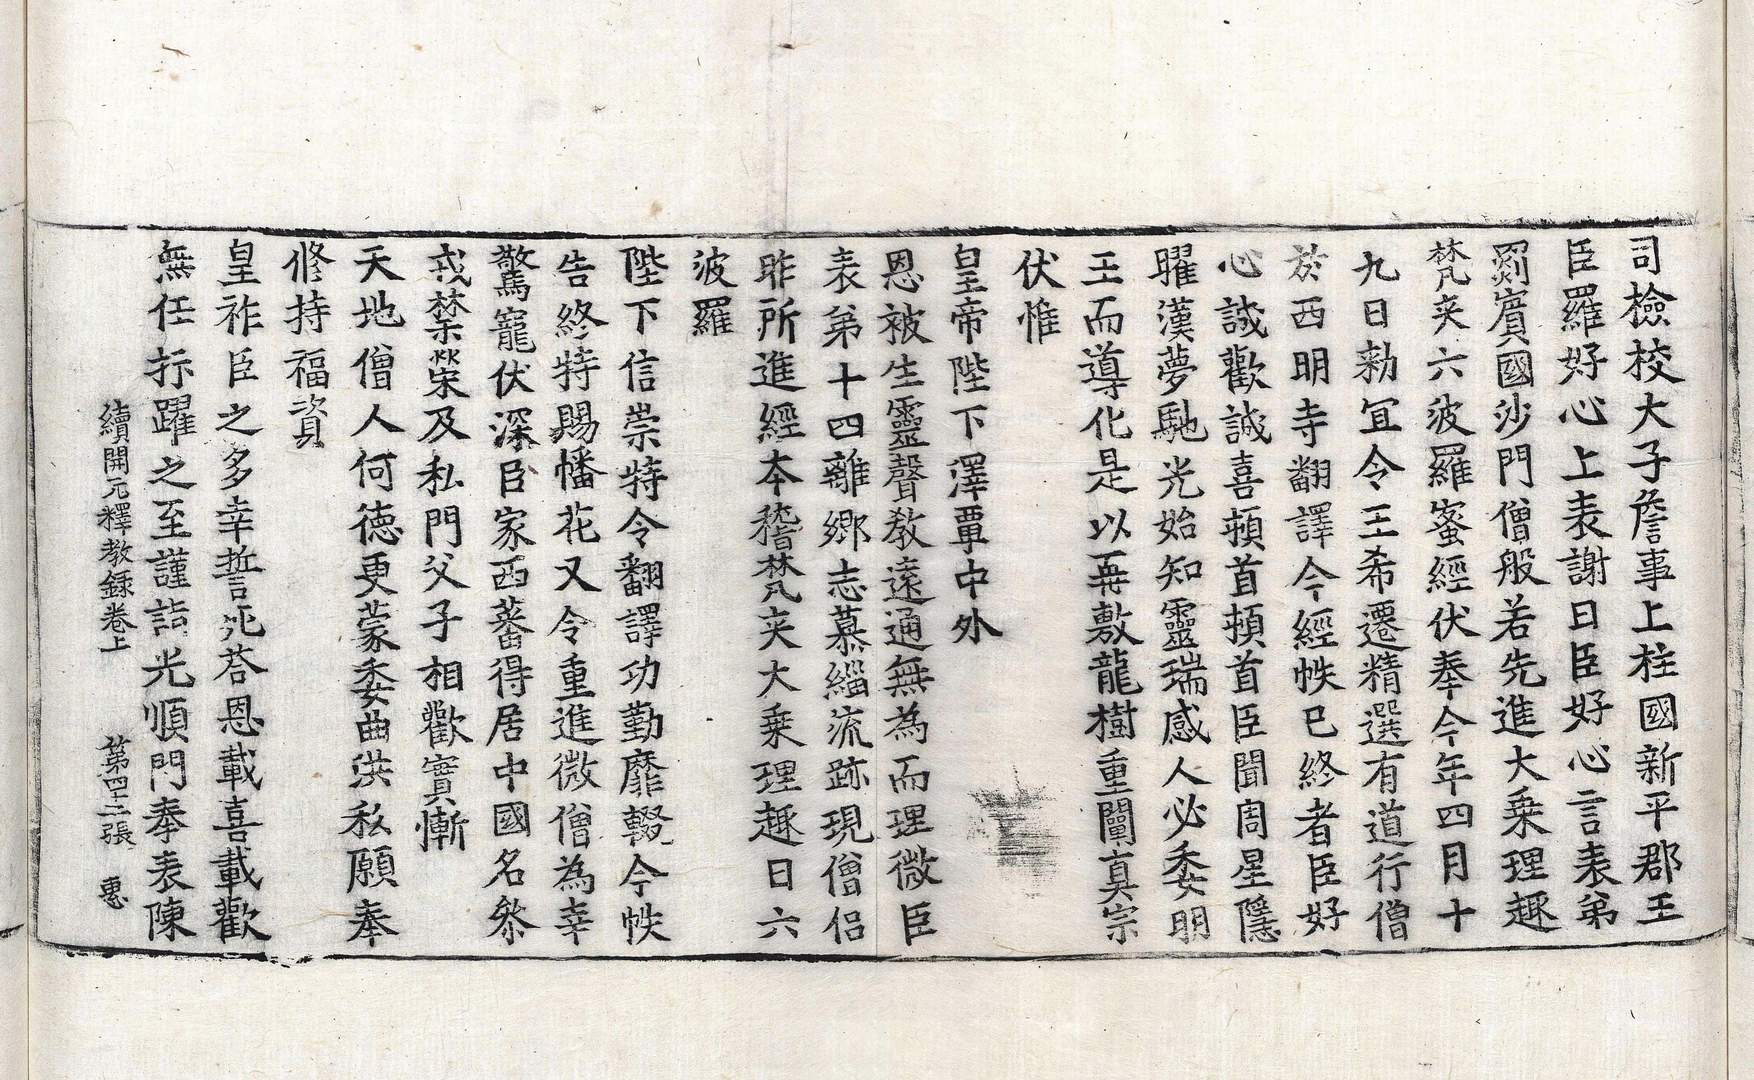 司檢校大子詹事上柱國新平郡王
臣羅好心上表謝曰臣好心言表弟
罽賓國沙門僧般若先進大乗理趣
梵夾六波羅蜜經伏奉今年四月十
九日勑冝令王希遷精選有道行僧
於西明寺翻譯今經帙已終者臣好
心誠歡誠喜頓首頓首臣聞周星隱
曜漢夢馳光始知靈瑞感人必委明
王而導化是以再敷龍樹重闡真宗
伏惟
皇帝陛下澤覃中外
恩被生靈聲教遠通無為而理微臣
表弟十四離鄉志慕緇流跡現僧侶
昨所進經本稽梵夾大乗理趣日六
波羅
陛下信崇特令翻譯功勤靡輟今帙
告終特賜幡花又令重進微僧為幸
驚寵伏深臣家西蕃得居中國名叅
戎禁榮及私門父子相歡實慚
天地僧人何德更蒙委曲洪私願奉
修持福資
皇祚臣之多幸誓死荅恩載喜載歡
無任抃躍之至謹詣光順門奉表陳
續開元釋教録卷上 第四十二張 惠